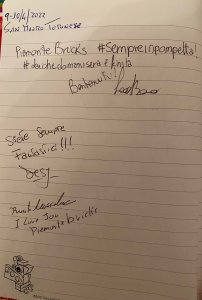 9-10/4/2022
SAN MAURO TORINESE
Piemonte Bricks #Sempreinpompetta!
#daichedomanisera è finita
Bentornati!
Siete Sempre
Fantastici!!!
Desy
I Love You
Piemonte bricks